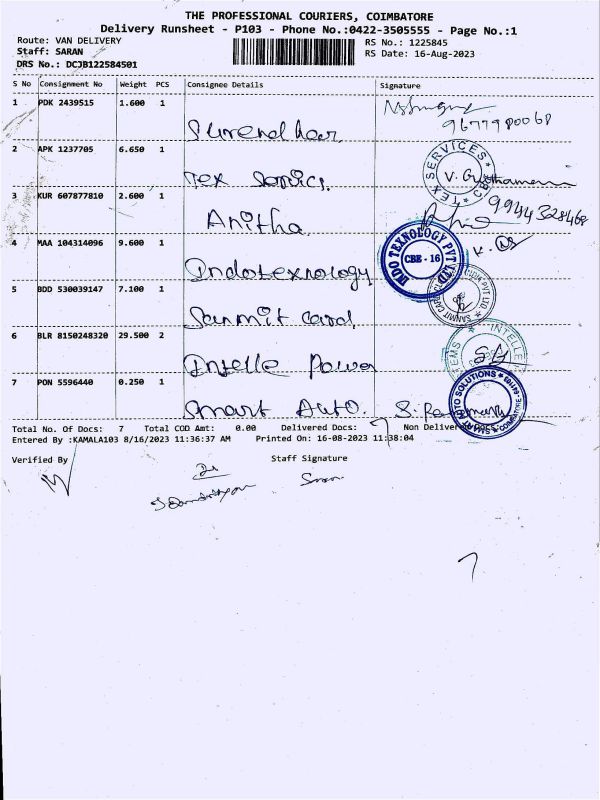 THE PROFESSIONAL COURIERS, COIMBATORE
Delivery Runsheet - P103 - Phone No.:0422-3505555 - Page No.:1
Route: VAN DELIVERY RS No.: 1225845
Staff: SARAN RS Date: 16-Aug-2023
DRS No.: DCJB122584501
S No Consignment No Weight PCS Consignee Details Signature
1 PDK 2439515 1.600 1
Surendhar
2 APK 1237705 6.650 1
Tex Services. TEX SERVICES CBE
3 KUR 607877810 2.600 1
Anitha
4 MAA 104314096 9.600 1
Indotexnology INDO TEXNOLOGY PVT LTD CBE - 16
5 BDD 530039147 7.100 1
Sanmit card
6 BLR 8150248320 29.500 2
Intelle Power
7 PON 5596440 0.250 1
Smart Auto. SMART AUTO SOLUTIONS
Total No. Of Docs: 7 Total COD Amt: 0.00 Delivered Docs: 7 Non Delivered Docs:
Entered By :KAMALA103 8/16/2023 11:36:37 AM Printed On: 16-08-2023 11:38:04
Verified By Staff Signature
Saran
7